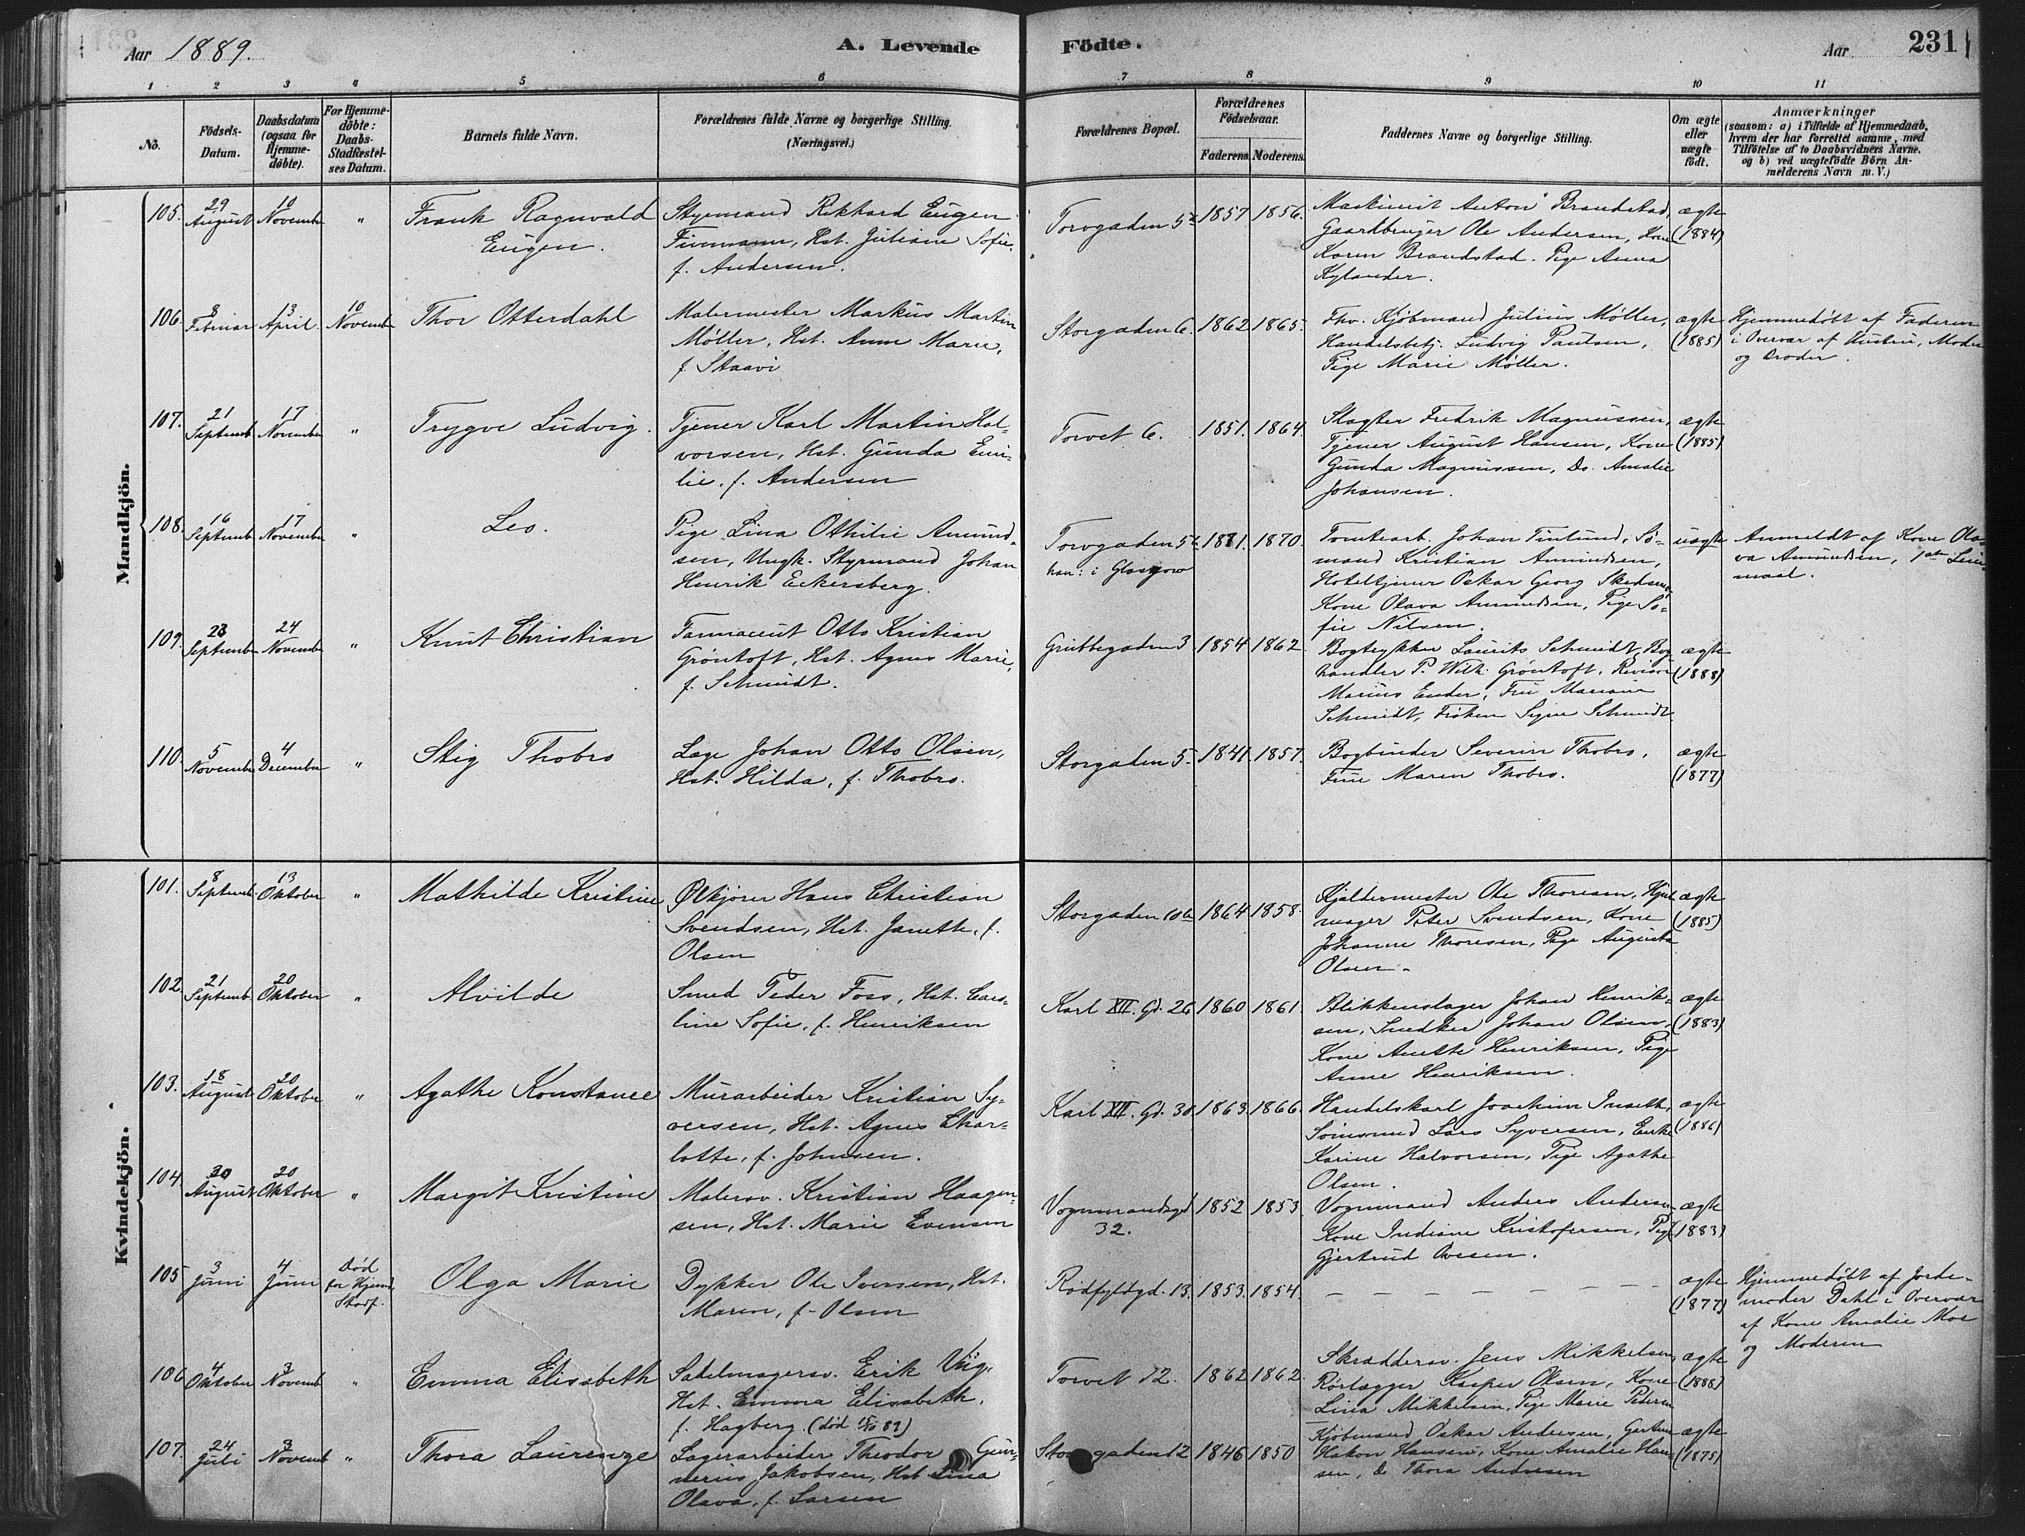 Aar 1889.
A. Levende
Födte.
Aar
231
1 2 3 4 5 6 7 8 9 10 11
No.
Födsels-
Datum.
Daabsdatum
(ogsaa for
Hjemme-
döbte).
For Hjemme-
döbte:
Daabs-
Stadfæstel-
ses Datum.
Barnets fulde Navn.
Forældrenes fulde Navne og borgerlige Stilling.
(Næringsvei.)
Forældrenes Bopæl.
Forældrenes
Födselsaar.
Faderens. Moderens.
Faddernes Navne og borgerlige Stilling.
Om ægte
eller
uægte
födt.
Anmærkninger
(saasom: a) i Tilfælde af Hjemmedaab,
hvem der har forrettet samme, med
Tilföielse af to Daabsvidners Navne.
og b) ved uægtefödte Börn An-
melderens Navn m. V.)
Mandkjön.
105. 29 August 10 November "
Frank Ragnvald
Eugen.
Styrmand Rikhard Eugen
Finmann, Hst. Juliane Sofie,
f. Andersen.
Torvgaden
1857 1856.
Maskinist Anton Brandstad,
Gaardbruger Ole Andersen, Kone
Karen Brandstad. Pige Anna
Kylander.
ægte
(1884)
106. 8 Februar 13 April. 10 Novemb
Thor Otterdahl
Malermester Markus Martin
Møller, Hst. Anne Marie,
f. Staavi
Storgaden 6.
1862 1865.
Fhv. Kjøbmand Julius Møller,
Handelsbetj. Ludvig Paulsen,
Pige Marie Møller.
ægte
(1885)
Hjemmedøbt af Faderen
i Overvær af Hustru, Moder
og Broder.
107. 21 Septemb 17 November "
Trygve Ludvig.
Tjener Karl Martin Hal-
vorsen, Hst. Gunda Emi-
lie, f. Andersen
Torvet 6.
1851. 1864.
Slagter Fredrik Magnussen,
Tjener August Hansen, Kone
Gunda Magnussen, Do. Amalie
Johansen.
ægte
(1885)
108. 16 Septemb 17 November "
Leo.
Pige Lina Othilie Amund-
sen, Ungk. Styrmand Johan
Henrik Eckersberg.
Torvgaden
han: i Glasgow
1870.
Tomtearb. Johan Finlund, Sø-
mand Kristian Amundsen,
Hoteltjener Oskar Georg
Kone Olava Amundsen, Pige So-
fie Nilsen.
uægte
Anmeldt af Kone Ola-
va Amundsen, 1ste Leier-
maal.
109. 23 September 24 November "
Knut Christian
Farmaceut Otto Kristian
Grøntoft, Hst. Agnes Marie,
f. Schmidt.
Grubbegaden 3
1854 1862
Bogtrykker Laurits Schmidt, Bog
handler P. Wilh. Grøntoft, Revisor
Marius Ender, Fru Mariane
Schmidt, Frøken Signe Schmidt
ægte
(1888)
110. 5 November 4 December "
Stig Thobro
Læge Johan Otto Olsen,
Hst. Hilda, f. Thobro.
Storgaden 5.
1841. 1857.
Bogbinder Severin Thobro,
Frue Maren Thobro.
ægte
(1877)
Kvindekjön.
101. 8 Septemb. 13 Oktober "
Mathilde Kristine
Ølkjører Hans Christian
Svendsen, Hst. Janette, f.
Olsen
Storgaden
1864 1858.
Kjældermester Ole Thoresen, Hjul
mager Peter Svendsen, Kone
Johanne Thoresen, Pige Augusta
Olsen.
ægte
(1885)
102. 21 Septemb. 20 Oktober "
Alvilde
Smed Peder Foss, Hst. Caro-
line Sofie, f. Henriksen
Karl XII. Gd. 26
1860 1861
Blikkenslager Johan Henrik-
sen, Snedker Johan Olsen,
Kone Anette Henriksen, Pige
Anne Henriksen.
ægte
(1883)
103. 18 August 20 Oktober "
Agathe Konstance
Murarbeider Kristian Sy-
versen, Hst. Agnes Char-
lotte, f. Johnsen.
Karl XII. Gd. 30
1863. 1866.
Handelskarl Joachim
Lars Syversen, Enke
Karine Halvorsen, Pige Agathe
Olsen.
ægte
(1886)
104. 30 August 20 Oktober "
Margit Kristine
Malersv. Kristian Haagen-
sen, Hst. Marie Evensen
Vognmandsgd
32.
1852 1853
Vognmand Anders Andersen
Kone Indiane Kristofersen, Pige
Gjertrud Ovesen.
ægte
(1883)
105 3 Juni 4 Juni død
før Hjemd.
Stadf.
Olga Marie
Dykker Ole Iversen, Hst.
Maren, f. Olsen
Rødfyldgd. 13.
1853. 1854.
— — — — — — —
ægte
(1877)
Hjemmedøbt af Jorde-
moder Dahl i Overvær
af Kone Amalie Moe
og Moderen
106 4 Oktober 3 Novemb "
Emma Elisabeth
Sadelmagersv. Erik Viig,
Hst. Emma Elisabeth,
f. Hagberg (død 15/10 89)
Torvet 12.
1862 1862.
Skræddersv. Jens Mikkelsen,
Rørlægger Kasper Olsen, Kone
Lina Mikkelsen, Pige Marie Pedersen
ægte
(1888)
107. 24 Juli 3 Novemb "
Thora Laurenze
Lagerarbeider Theodor Gun-
nerius Jakobsen, Hst. Lina
Olava, f. Larsen
Storgaden 12
1846 1850
Kjøbmand Oskar Andresen, Gartner
Hakon Hansen, Kone Amalie Han-
sen, do Thora Andresen
ægte
(1875)